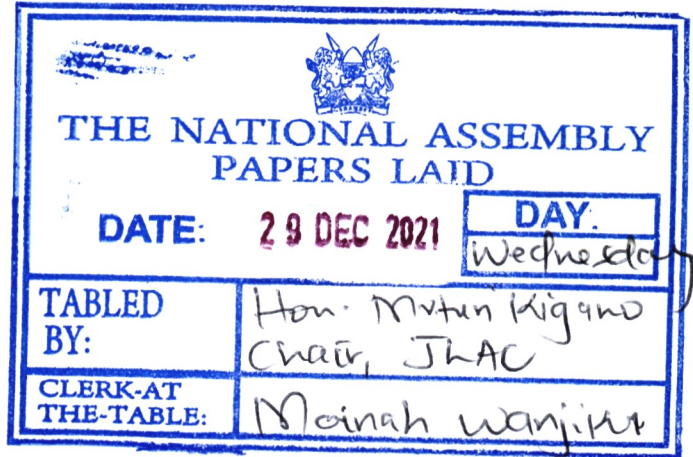 THE NATIONAL ASSEMBLY
PAPERS LAID
DATE: 29 DEC 2021
DAY.
Wednesday
TABLED
BY:
Hon. Muturi Kigano
Chair, JLAC
CLERK-AT
THE-TABLE:
Moinah Wanjiku